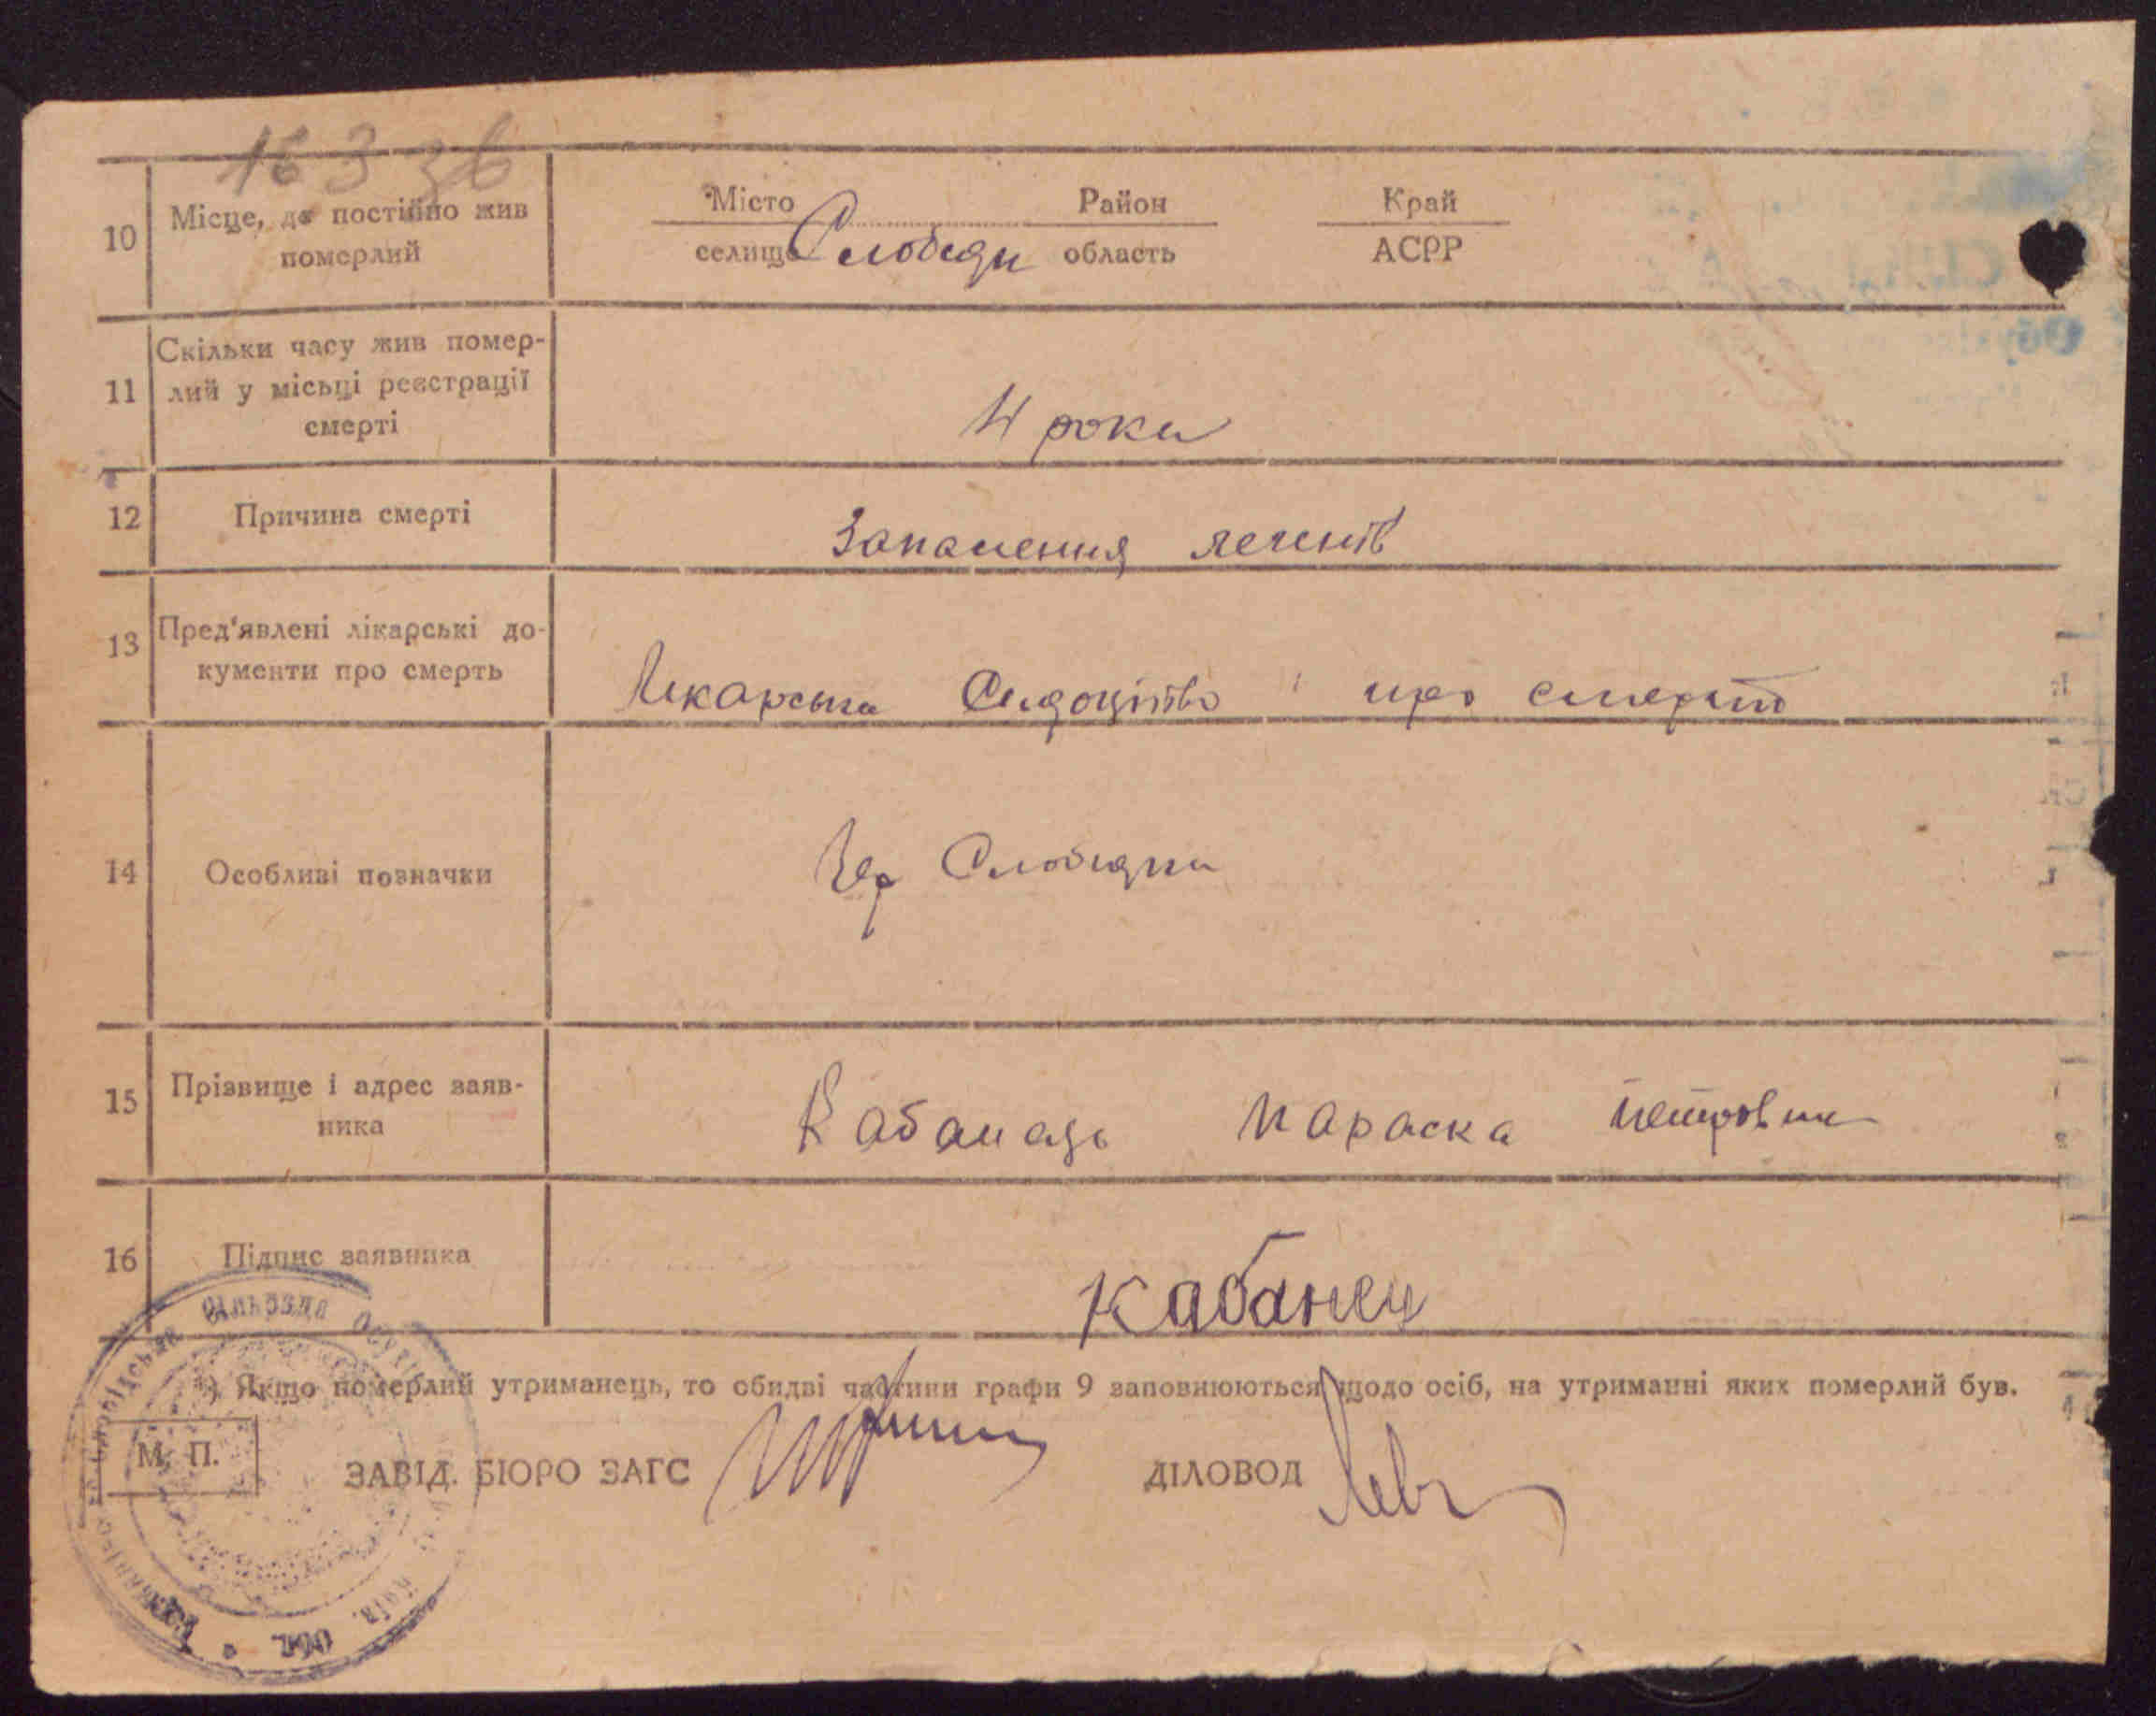 16 3 36
10 Місце, де постійно жив померлий
Місто Район Край
селище Слободи область АСРР
11 Скільки часу жив помер-
лий у місьці реєстрації
смерті
4 роки
12 Причина смерті
Запалення легенів
13 Пред'явлені лікарські до-
кументи про смерть
Лікарська Свідоцтво про смерть
14 Особливі позначки
Слобідки
15 Прізвище і адрес заяв-
ника
Кабанець Параска Петровна
16 Підпис заявника
Кабанец
*) Якщо померлий утриманець, то обидві частини графи 9 заповнюються щодо осіб, на утриманні яких померлий був.
М. П.
ЗАВІД. БЮРО ЗАГС ДІЛОВОД
сільрада
обл.